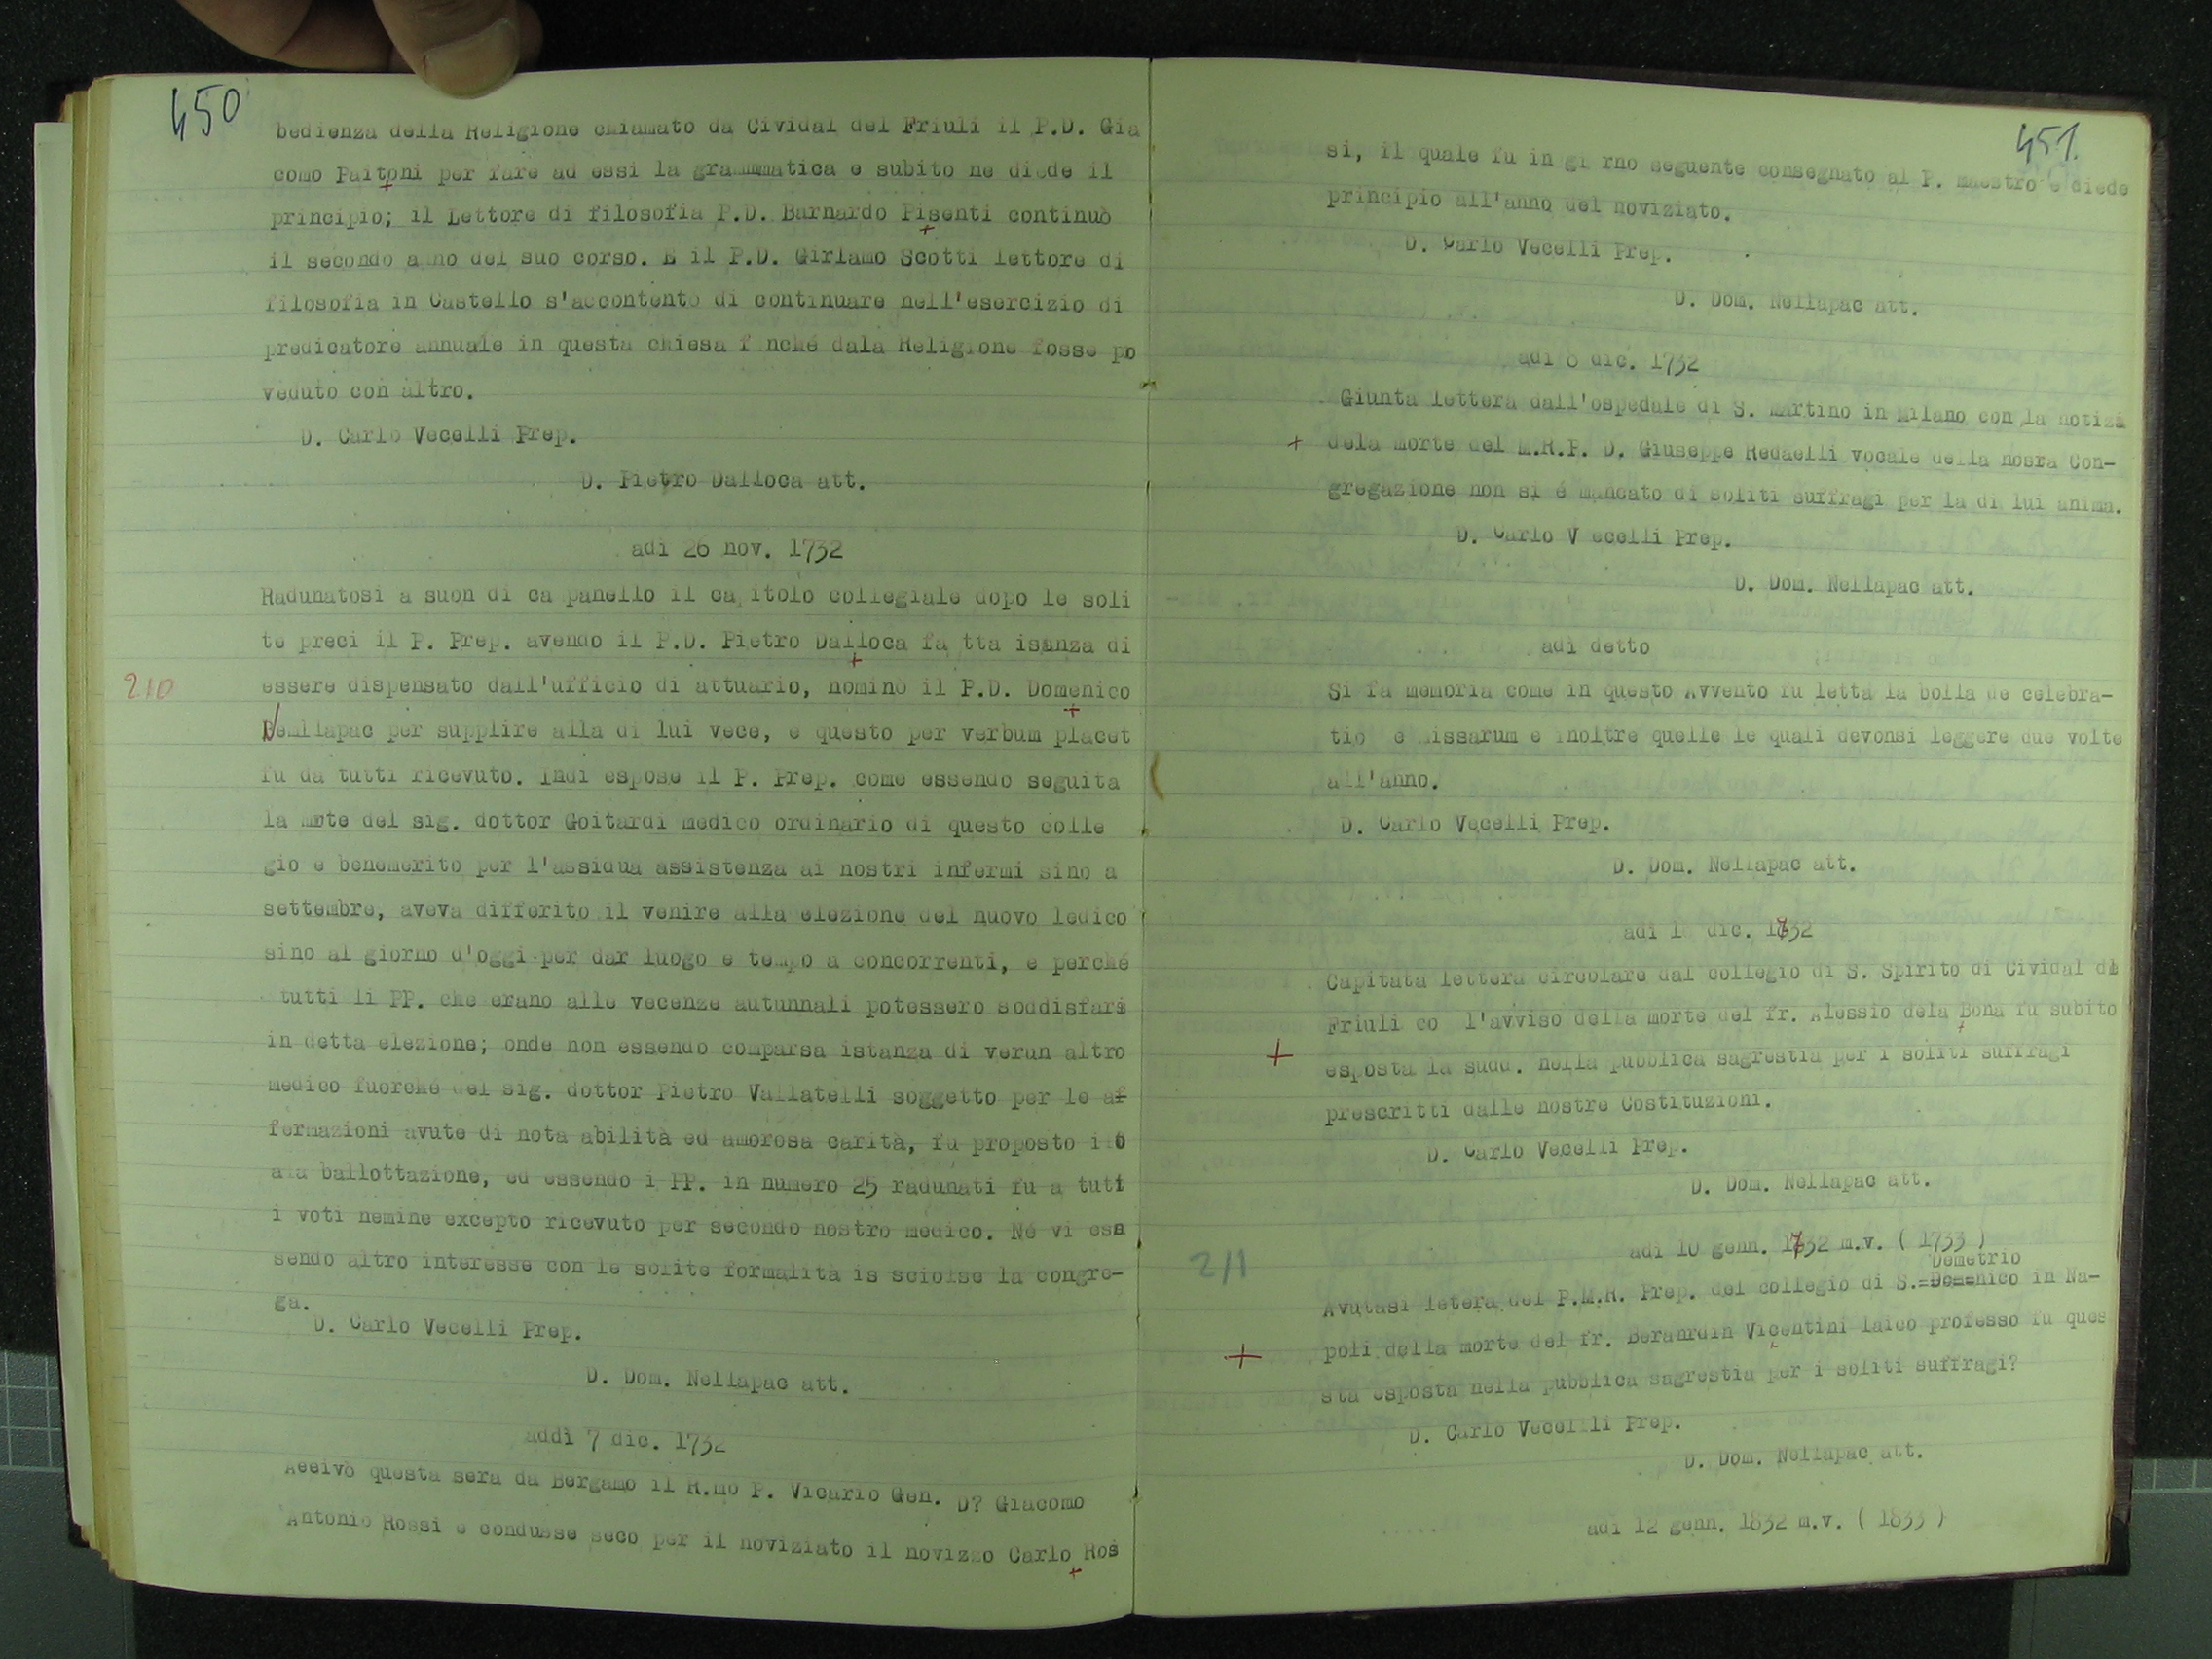 450
bedienza della Religione chiamato da Cividal del Friuli il P.D. Gia
como Paitoni per fare ad essi la grammmatica e subito ne diede il
principio; il Lettore di filosofia P.D. Barnardo Pisenti continuò
il secondo anno del suo corso. E il P.D. Girlamo Scotti lettore di
filosofia in Castello s'accontentò di continuare nell'esercizio di
predicatore annuale in questa chiesa finché dala Religione fosse po
veduto con altro.
D. Carlo Vecelli Prep.
D. Pietro Dalloca att.
adì 26 nov. 1732
Radunatosi a suon di ca panello il capitolo collegiale dopo le soli
te preci il P. Prep. avendo il P.D. Pietro Dalloca fa tta isanza di
210
essere dispensato dall'ufficio di attuario, nominò il P.D. Domenico
Nemllapac per supplire alla di lui vece, e questo per verbum placet
fu da tutti ricevuto. Indi espose il P. Prep. come essendo seguita
la mote del sig. dottor Goitardi medico ordinario di questo colle
gio e benemerito per l'assidua assistenza ai nostri infermi sino a
settembre, aveva differito il venire alla elezione del nuovo ledico
sino al giorno d'oggi per dar luogo e tempo a concorrenti, e perché
tutti li PP. che erano alle vecenze autunnali potessero soddisfari
in detta elezione; onde non essendo comparsa istanza di verun altro
medico fuorché del sig. dottor Pietro Vallatelli soggetto per le af
fermazioni avute di nota abilità ed amorosa carità, fu proposto
ala ballottazione, ed essendo i PP. in numero 25 radunati fu a tuti
i voti nemine excepto ricevuto per secondo nostro medico. Né vi ess
sendo altro interesse con le solite formalità is sciolse la congre-
ga.
D. Carlo Vecelli Prep.
D. Dom. Nellapac att.
addì 7 dic. 1732
Aeeivò questa sera da Bergamo il R.mo P. Vicario Gen. D? Giacomo
Antonio Rossi e condusse seco per il noviziato il novizzo Carlo Ros
451.
si, il quale fu in gi rno seguente consegnato al P. maestro e diede
principio all'anno del noviziato.
D. Carlo Vecelli Prep.
D. Dom. Nellapac att.
adì 8 dic. 1732
Giunta lettera dall'ospedale di S. Martino in Milano con la notizi
+ dela morte del M.R.P. D. Giuseppe Redaelli vocale della nosra Con-
gregazione non si é mancato di soliti suffragi per la di lui anima.
D. Carlo V ecelli Prep.
D. Dom. Nellapac att.
adì detto
Si fa memoria come in questo Avvento fu letta la bolla de celebra-
tio e missarum e inoltre quelle le quali devonsi leggere due volte
all'anno.
D. Carlo Vecelli Prep.
D. Dom. Nellapac att.
adì dic. 1732
Capitata lettera circolare dal collegio di S. Spirito di Cividal de
Friuli co l'avviso della morte del fr. Alessio dela Bona fu subito
+ esposta la sudd. nella pubblica sagrestia per i soliti suffragi
prescritti dalle nostre Costituzioni.
D. Carlo Vecelli Prep.
D. Dom. Nellapac att.
211
adì 10 genn. 1732 m.v. ( 1733 )
Demetrio
Avutasi letera del P.M.R. Prep. del collegio di S. Domenico in Na-
+ poli della morte del fr. Beranrdin Vicentini laico professo fu ques
sta esposta nella pubblica sagrestia per i soliti suffragi?
D. Carlo Vecellli Prep.
D. Dom. Nellapac att.
adì 12 genn. 1832 m.v. ( 1833 )